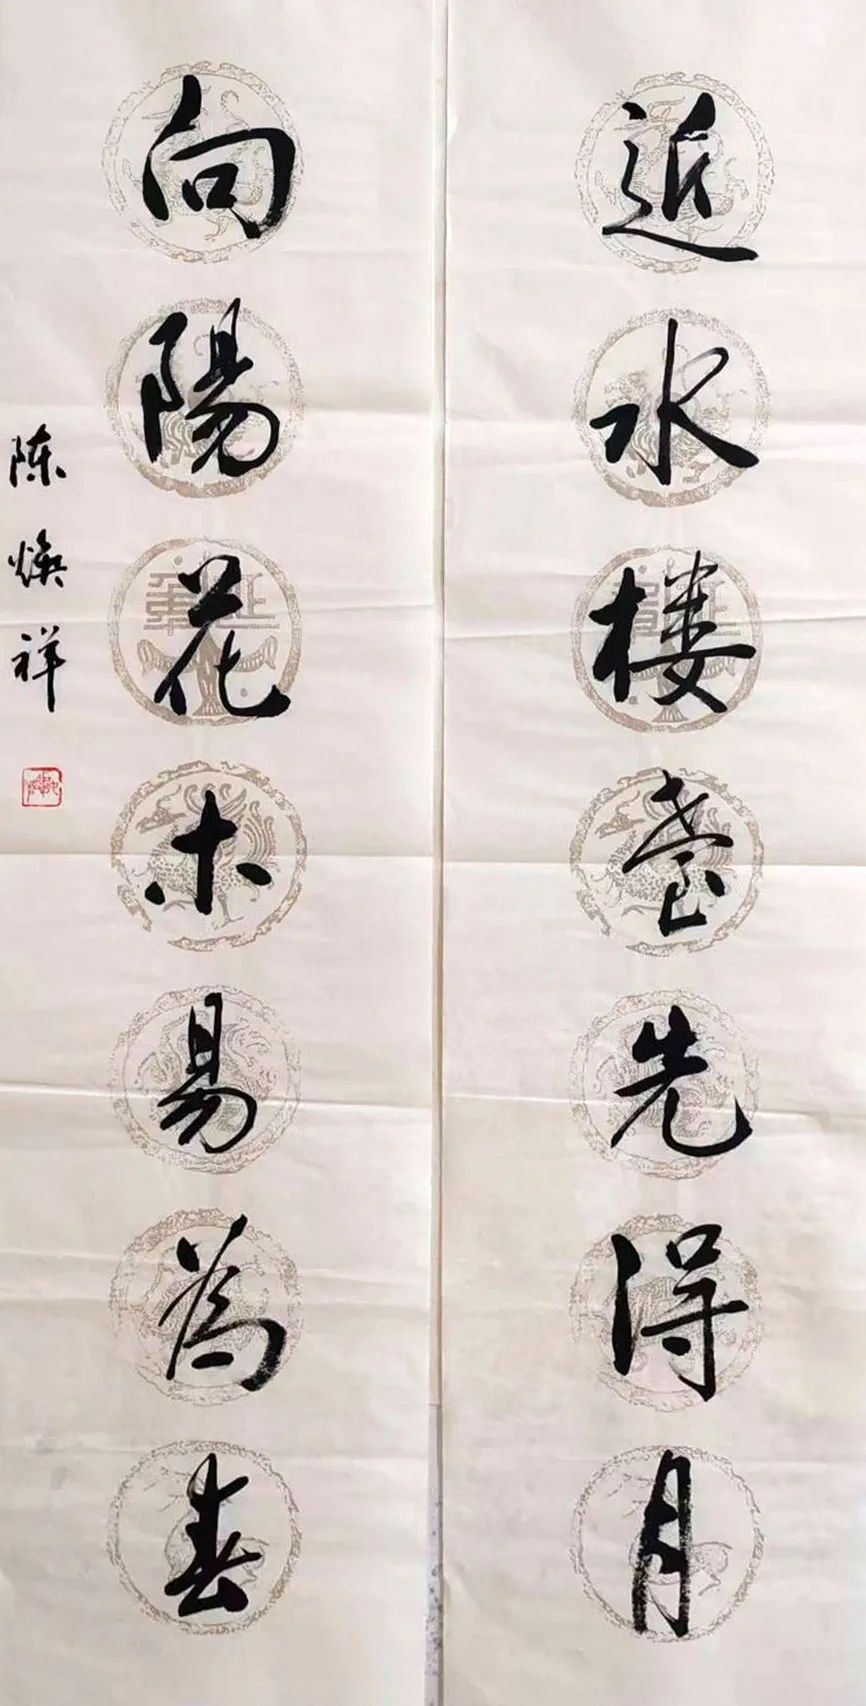 近水楼臺先得月
向陽花木易為春
陈焕祥